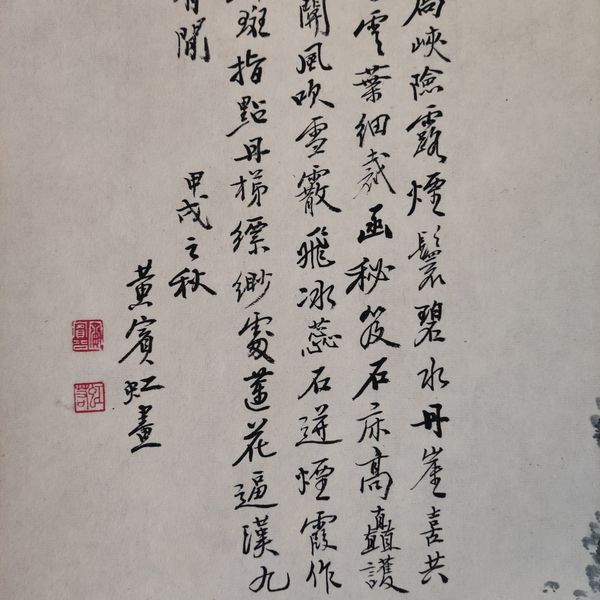 峽險露煙鬟碧水丹崖喜共
雲葉細裁函秘笈石床高矗護
開風吹雪霰飛冰蕊石迸煙霞作
斑指點丹梯縹緲處蓮花逼漢九
有閒
甲戌之秋
黃賓虹畫